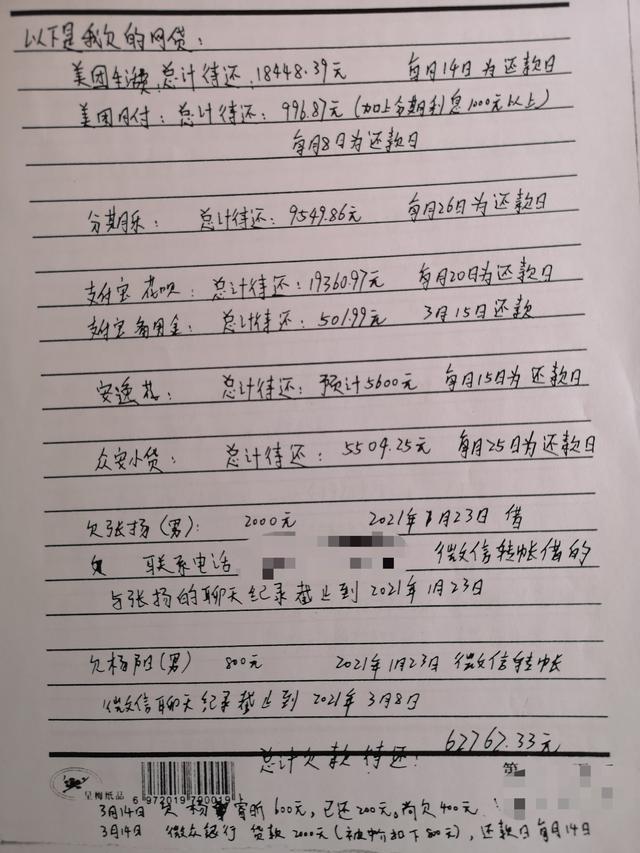 以下是我欠的网贷：
美团生活费：总计待还：18448.39元 每月14日为还款日
美团月付：总计待还：996.87元（加上分期利息1000元以上）
每月8日为还款日
分期乐：总计待还：9549.86元 每月26日为还款日
支付宝花呗：总计待还：19360.97元 每月20日为还款日
支付宝备用金：总计待还：501.99元 3月15日还款
安逸花：总计待还：预计5600元 每月15日为还款日
众安小贷：总计待还：5504.25元 每月25日为还款日
欠张扬（男）：2000元 2021年1月23日借
联系电话 微信转帐借的
与张扬的聊天纪录截止到2021年1月23日
欠杨阳（男） 800元 2021年1月23日 微信转帐
微信聊天纪录截止到2021年3月8日
总计欠款待还：62762.33元
第
呈梅纸品 6 972019 790019
3月14日 欠杨 600元，已还200元，尚欠400元
3月14日 微众银行 贷款2000元（被中介扣下800元），还款日每月14日